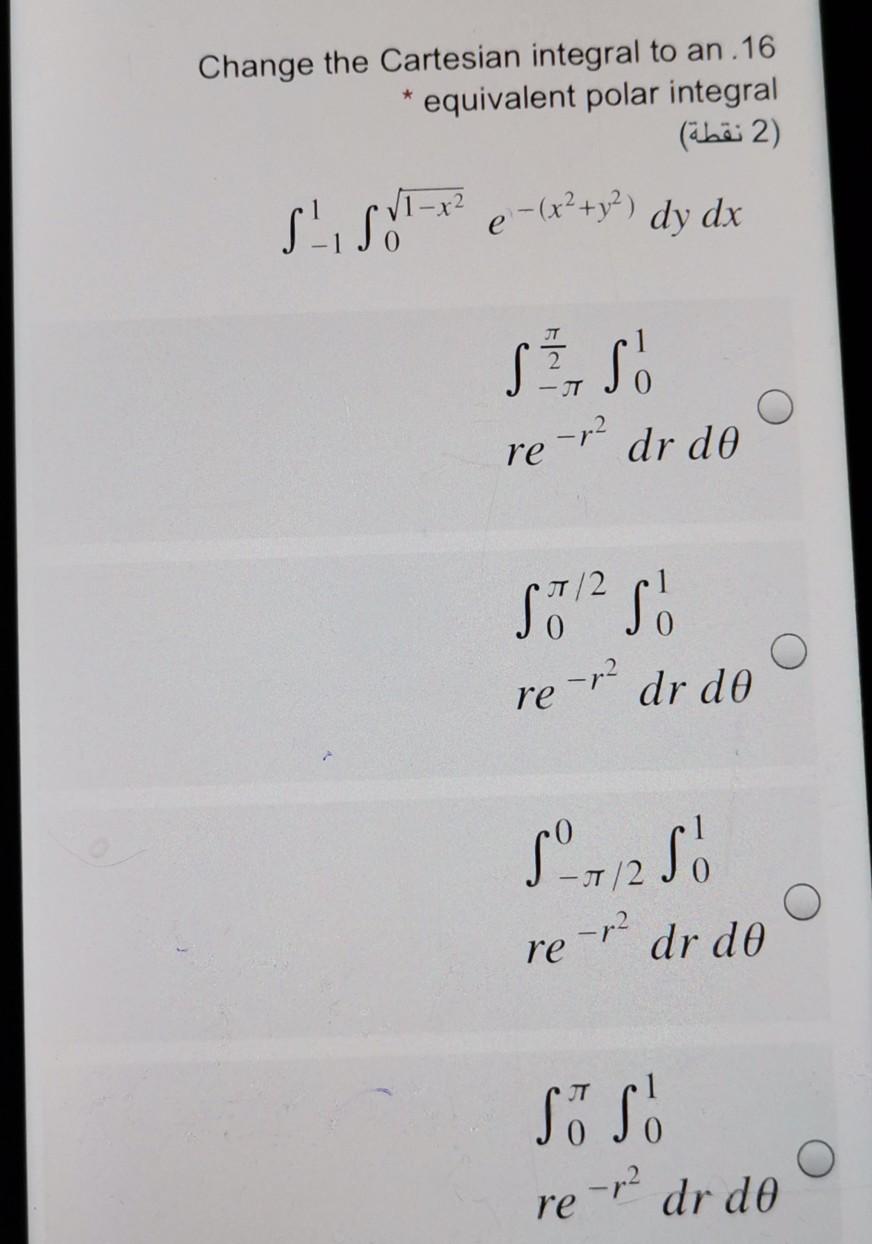 Change the Cartesian integral to an .16
* equivalent polar integral
(2 نقطة)
∫_{-1}^{1} ∫_{0}^{√(1−x²)} e^{−(x²+y²)} dy dx
∫_{−π}^{π/2} ∫_{0}^{1}
re^{−r²} dr dθ
∫_{0}^{π/2} ∫_{0}^{1}
re^{−r²} dr dθ
∫_{−π/2}^{0} ∫_{0}^{1}
re^{−r²} dr dθ
∫_{0}^{π} ∫_{0}^{1}
re^{−r²} dr dθ